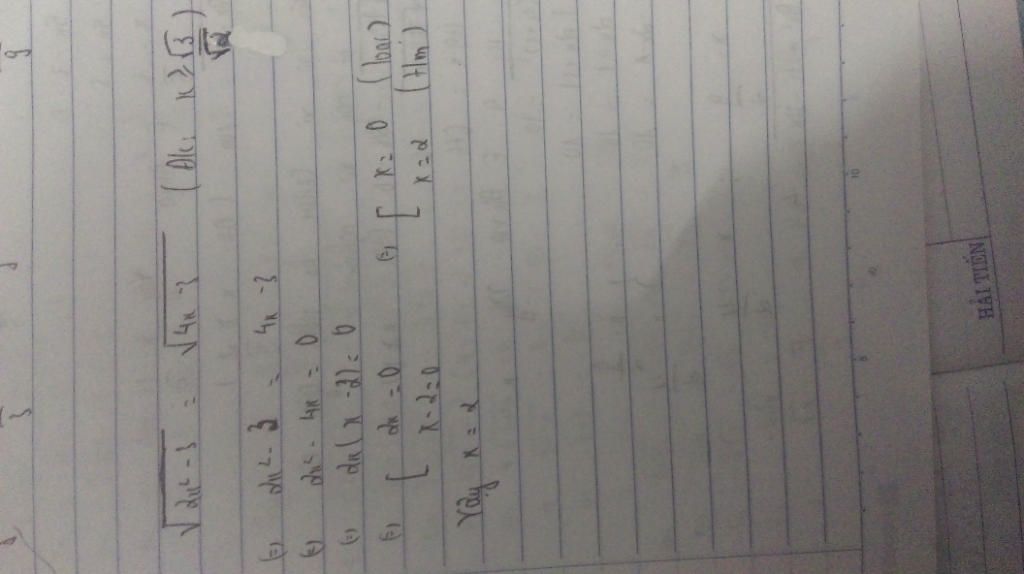 √(2x² - 3) = √(4x - 3) (ĐK: x ≥ √3/√2)
(=) 2x² - 3 = 4x - 3
(=) 2x² - 4x = 0
(=) 2x(x - 2) = 0
(=) [ 2x = 0 (=) [ x = 0 (loại)
x - 2 = 0 x = 2 (t/m)
Vậy x = 2
HẢI TIẾN
8
10